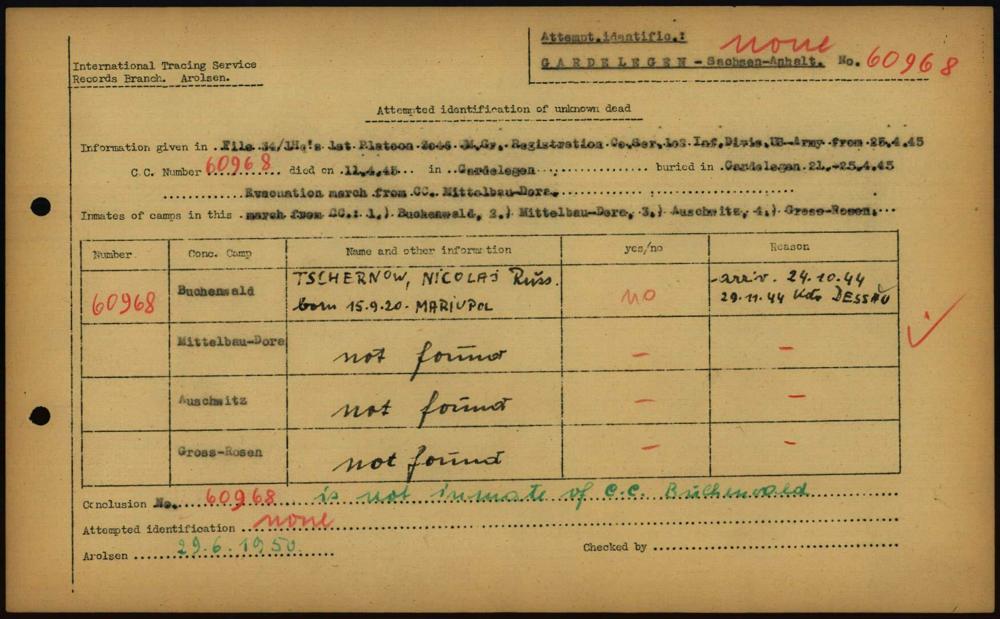 Attempt.identific.: none
International Tracing Service
GARDELEGEN - Sachsen-Anhalt. No. 60968
Records Branch. Arolsen.
Attempted identification of unknown dead
Information given in . File 34/1Hq's 1st Platoon 3046 .M.Gr. Registration Co.Ser. Inf.Divis.US-Army from 25.4.45
C.C. Number 60968 died on 11.4.45 in Gardelegen buried in Gardelegen 21.-25.4.45
Evacuation march from CC. Mittelbau-Dora.
Inmates of camps in this march from CC.: 1.) Buchenwald, 2.) Mittelbau-Dora, 3.) Auschwitz, 4.) Gross-Rosen.
Number Conc. Camp Name and other information yes/no Reason
60968 Buchenwald TSCHERNOW, NICOLAJ Russ. no - arriv. 24.10.44
born 15.9.20. MARIUPOL 29.11.44 Kdo DESSAU
Mittelbau-Dora not found - -
Auschwitz not found - -
Gross-Rosen not found - -
Conclusion No. 60968 is not inmate of C.C. Buchenwald
Attempted identification none
Arolsen 29.6.1950 Checked by